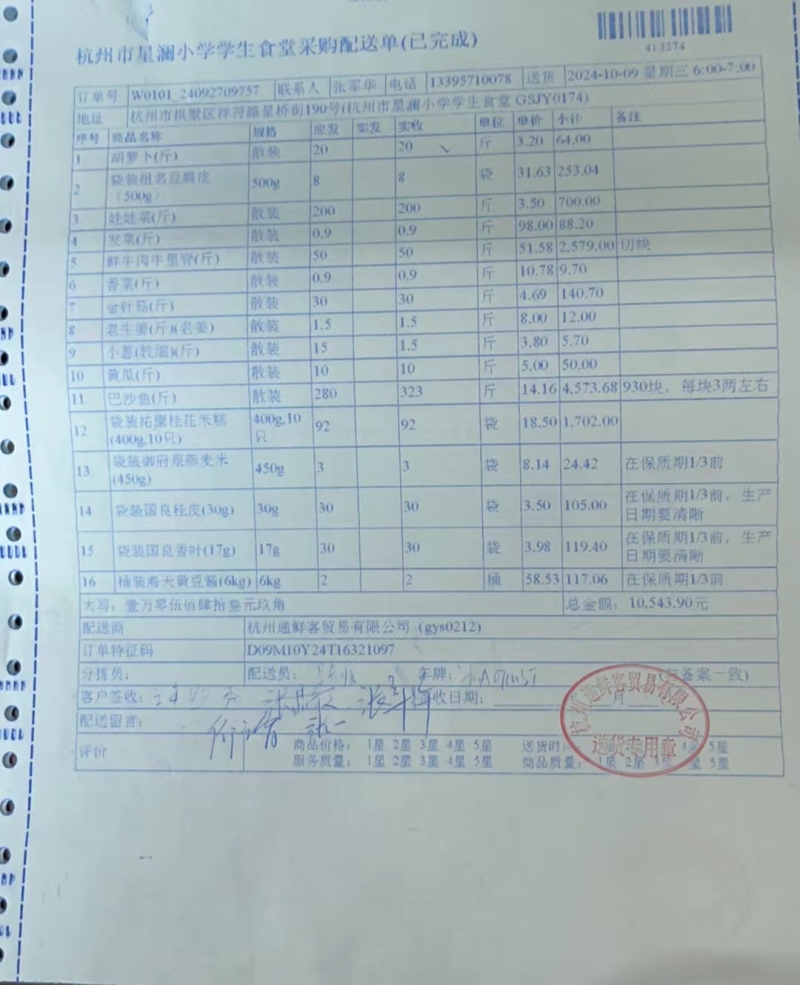 杭州市星澜小学学生食堂采购配送单(已完成)
413274
订单号 W0101_24092709757 联系人 张军华 电话 13395710078 送货 2024-10-09 星期三 6:00-7:00
地址 杭州市拱墅区祥符路星桥街190号(杭州市星澜小学学生食堂 GSJY0174)
序号 商品名称 规格 应发 实发 实收 单位 单价 小计 备注
1 胡萝卜(斤) 散装 20 20 斤 3.20 64.00
2 袋装祖名豆腐皮(500g) 500g 8 8 袋 31.63 253.04
3 娃娃菜(斤) 散装 200 200 斤 3.50 700.00
4 发菜(斤) 散装 0.9 0.9 斤 98.00 88.20
5 鲜牛肉牛里脊(斤) 散装 50 50 斤 51.58 2,579.00 切块
6 香菜(斤) 散装 0.9 0.9 斤 10.78 9.70
7 金针菇(斤) 散装 30 30 斤 4.69 140.70
8 老生姜(斤)(老姜) 散装 1.5 1.5 斤 8.00 12.00
9 小葱(较细)(斤) 散装 15 1.5 斤 3.80 5.70
10 黄瓜(斤) 散装 10 10 斤 5.00 50.00
11 巴沙鱼(斤) 散装 280 323 斤 14.16 4,573.68 930块，每块3两左右
12 袋装祐康桂花米糕(400g,10只) 400g,10只 92 92 袋 18.50 1,702.00
13 袋装御府原燕麦米(450g) 450g 3 3 袋 8.14 24.42 在保质期1/3前
14 袋装国良桂皮(30g) 30g 30 30 袋 3.50 105.00 在保质期1/3前，生产日期要清晰
15 袋装国良香叶(17g) 17g 30 30 袋 3.98 119.40 在保质期1/3前，生产日期要清晰
16 桶装海天黄豆酱(6kg) 6kg 2 2 桶 58.53 117.06 在保质期1/3前
大写：壹万零伍佰肆拾叁元玖角 总金额：10,543.90元
配送商 杭州通鲜客贸易有限公司 (gys0212)
订单特征码 D09M10Y24T16321097
分拣员： 配送员： 车牌： 备案一致)
客户签收： 收日期： 月
配送留言：
评价 商品价格： 1星 2星 3星 4星 5星 送货时 4星 5星
服务质量： 1星 2星 3星 4星 5星 商品质量： 1星 2星 3星 4星 5星
杭州通鲜客贸易有限公司
送货专用章